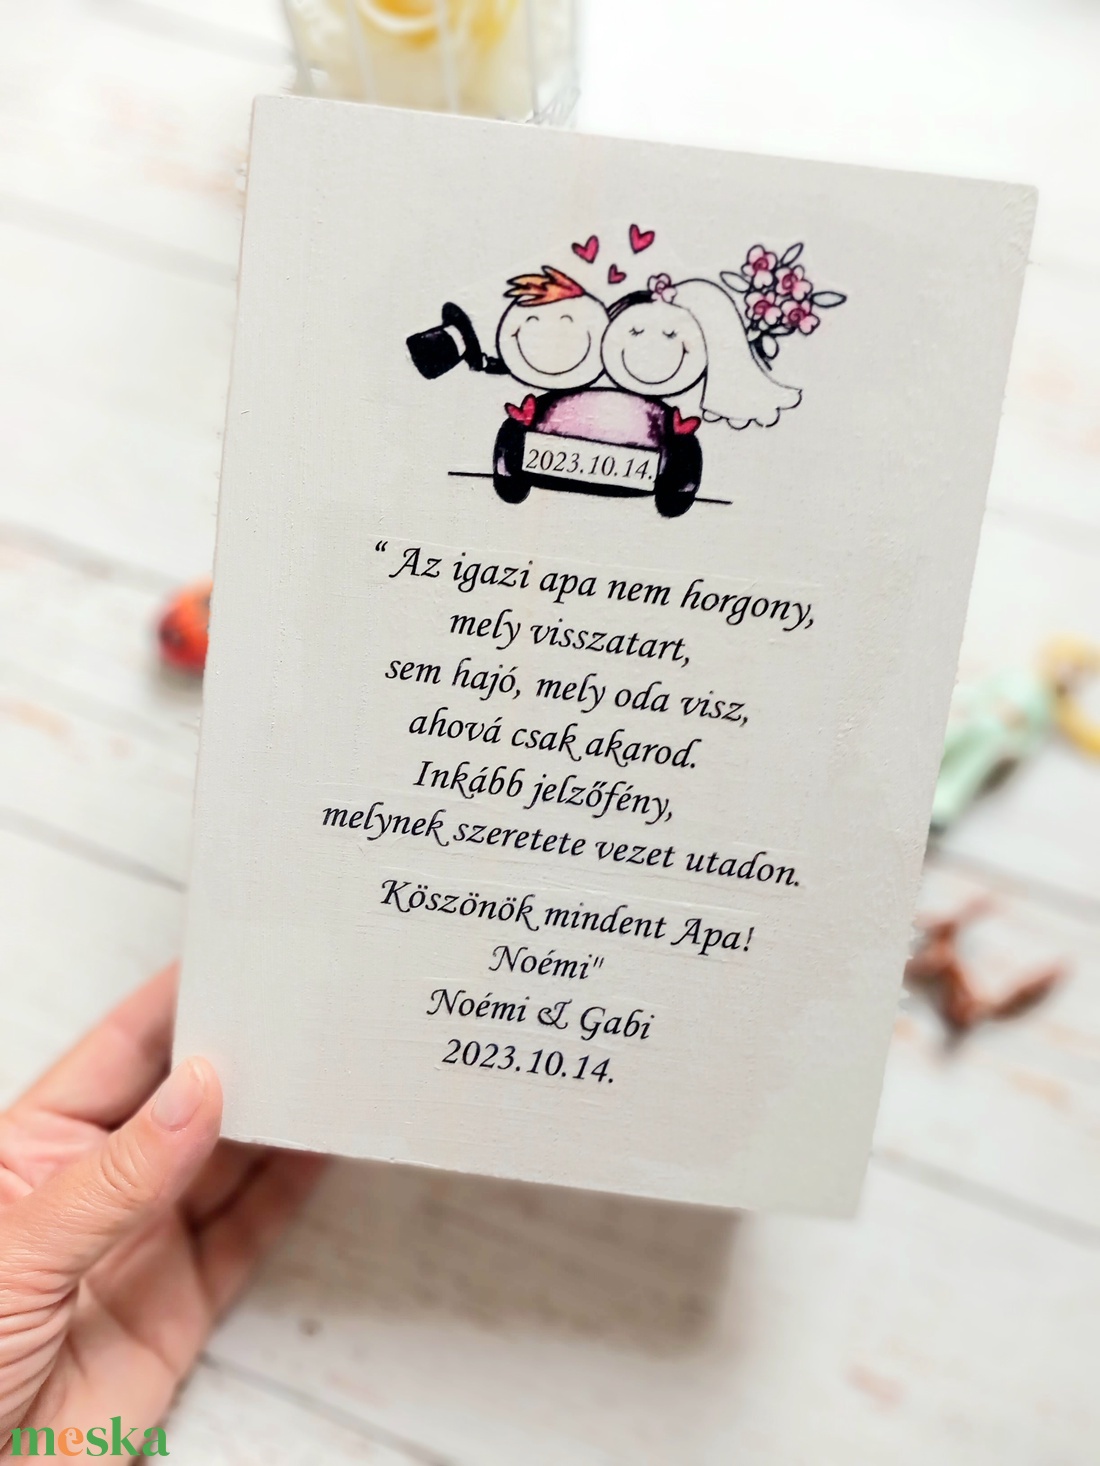 2023.10.14.
“ Az igazi apa nem horgony,
mely visszatart,
sem hajó, mely oda visz,
ahová csak akarod.
Inkább jelzőfény,
melynek szeretete vezet utadon.
Köszönök mindent Apa!
Noémi"
Noémi & Gabi
2023.10.14.
meska